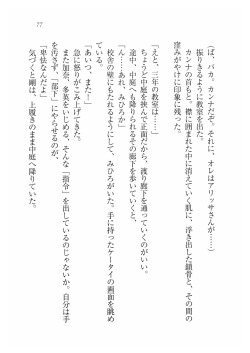 77
「ば、バカ。カンナだぞ。それに、オレはアリッサさんが……」
振りきるように教室を出た。
カンナの首もと。襟に囲まれた中に消えていく肌に、浮き出した鎖骨と、その間の
窪みがやけに印象に残った。
「えと、三年の教室は……」
ちょうど中庭を挟んで正面だから、渡り廊下を通っていくのがいい。
途中、中庭へも降りられるその廊下を歩いていくと、
「ん……あれ、みひろか」
校舎の壁にもたれるようにして、みひろがいた。手に持ったケータイの画面を眺め
ている。
「あいつ、また！」
急に怒りがこみ上げてきた。
また加奈、多英をいじめる、そんな「指令」を出しているのじゃないか。自分は手
を汚さず、「部下」にやらせるのが、
「卑怯なんだよ」
気づくと剛は、上履きのまま中庭へ降りていた。